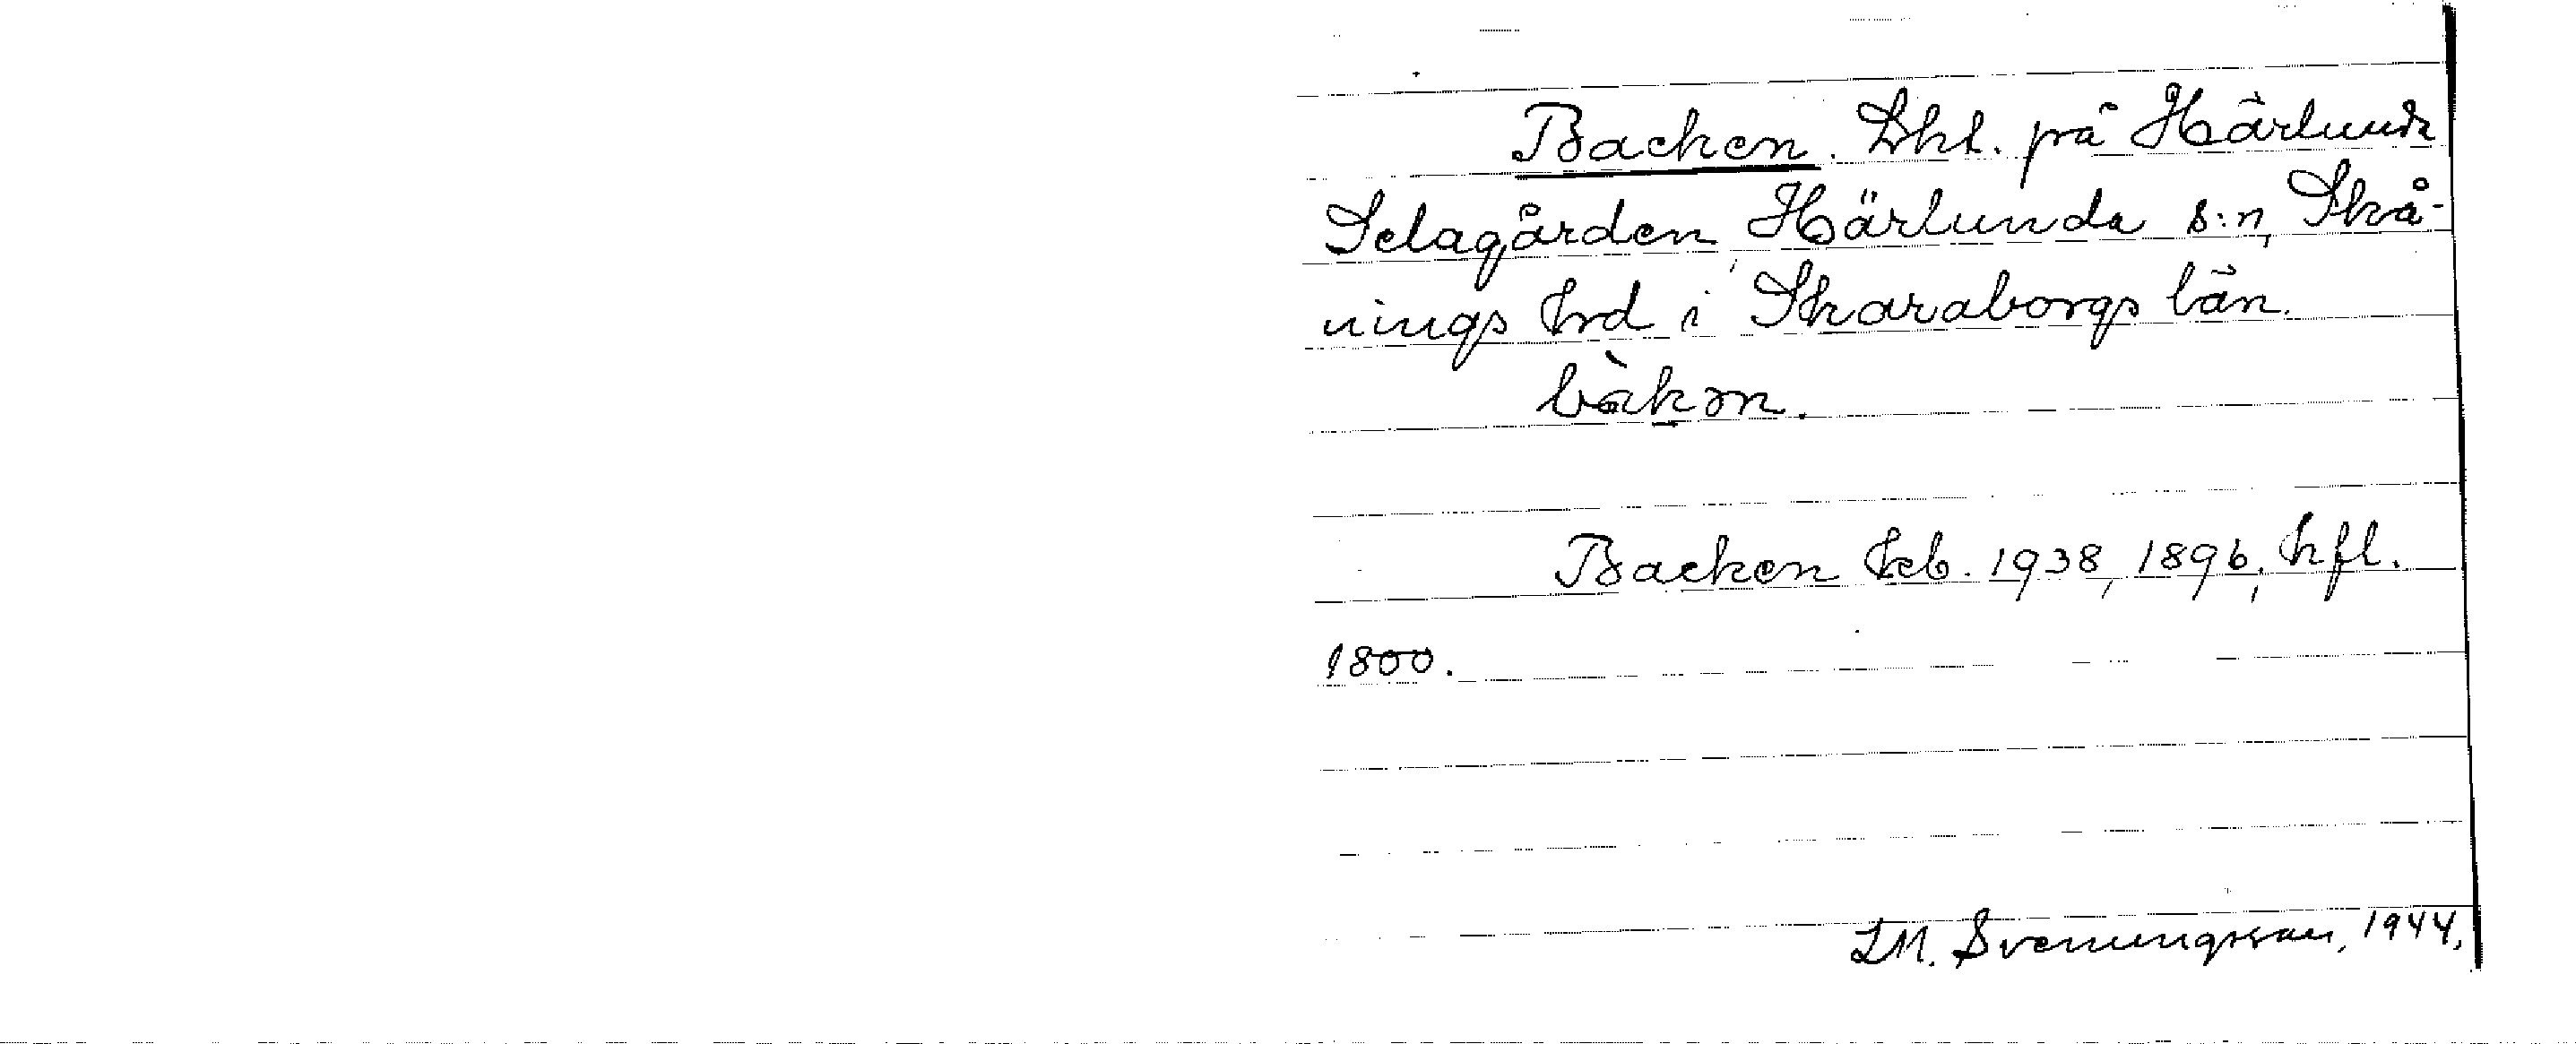 Backen. Lht. på Härlunda
Selagården, Härlunda s:n, Skå-
nings hrd i Skaraborgs län.
bàkən.
Backen kb. 1938, 1896; hfl.
1800.
L.M. Svenungsson, 1944.